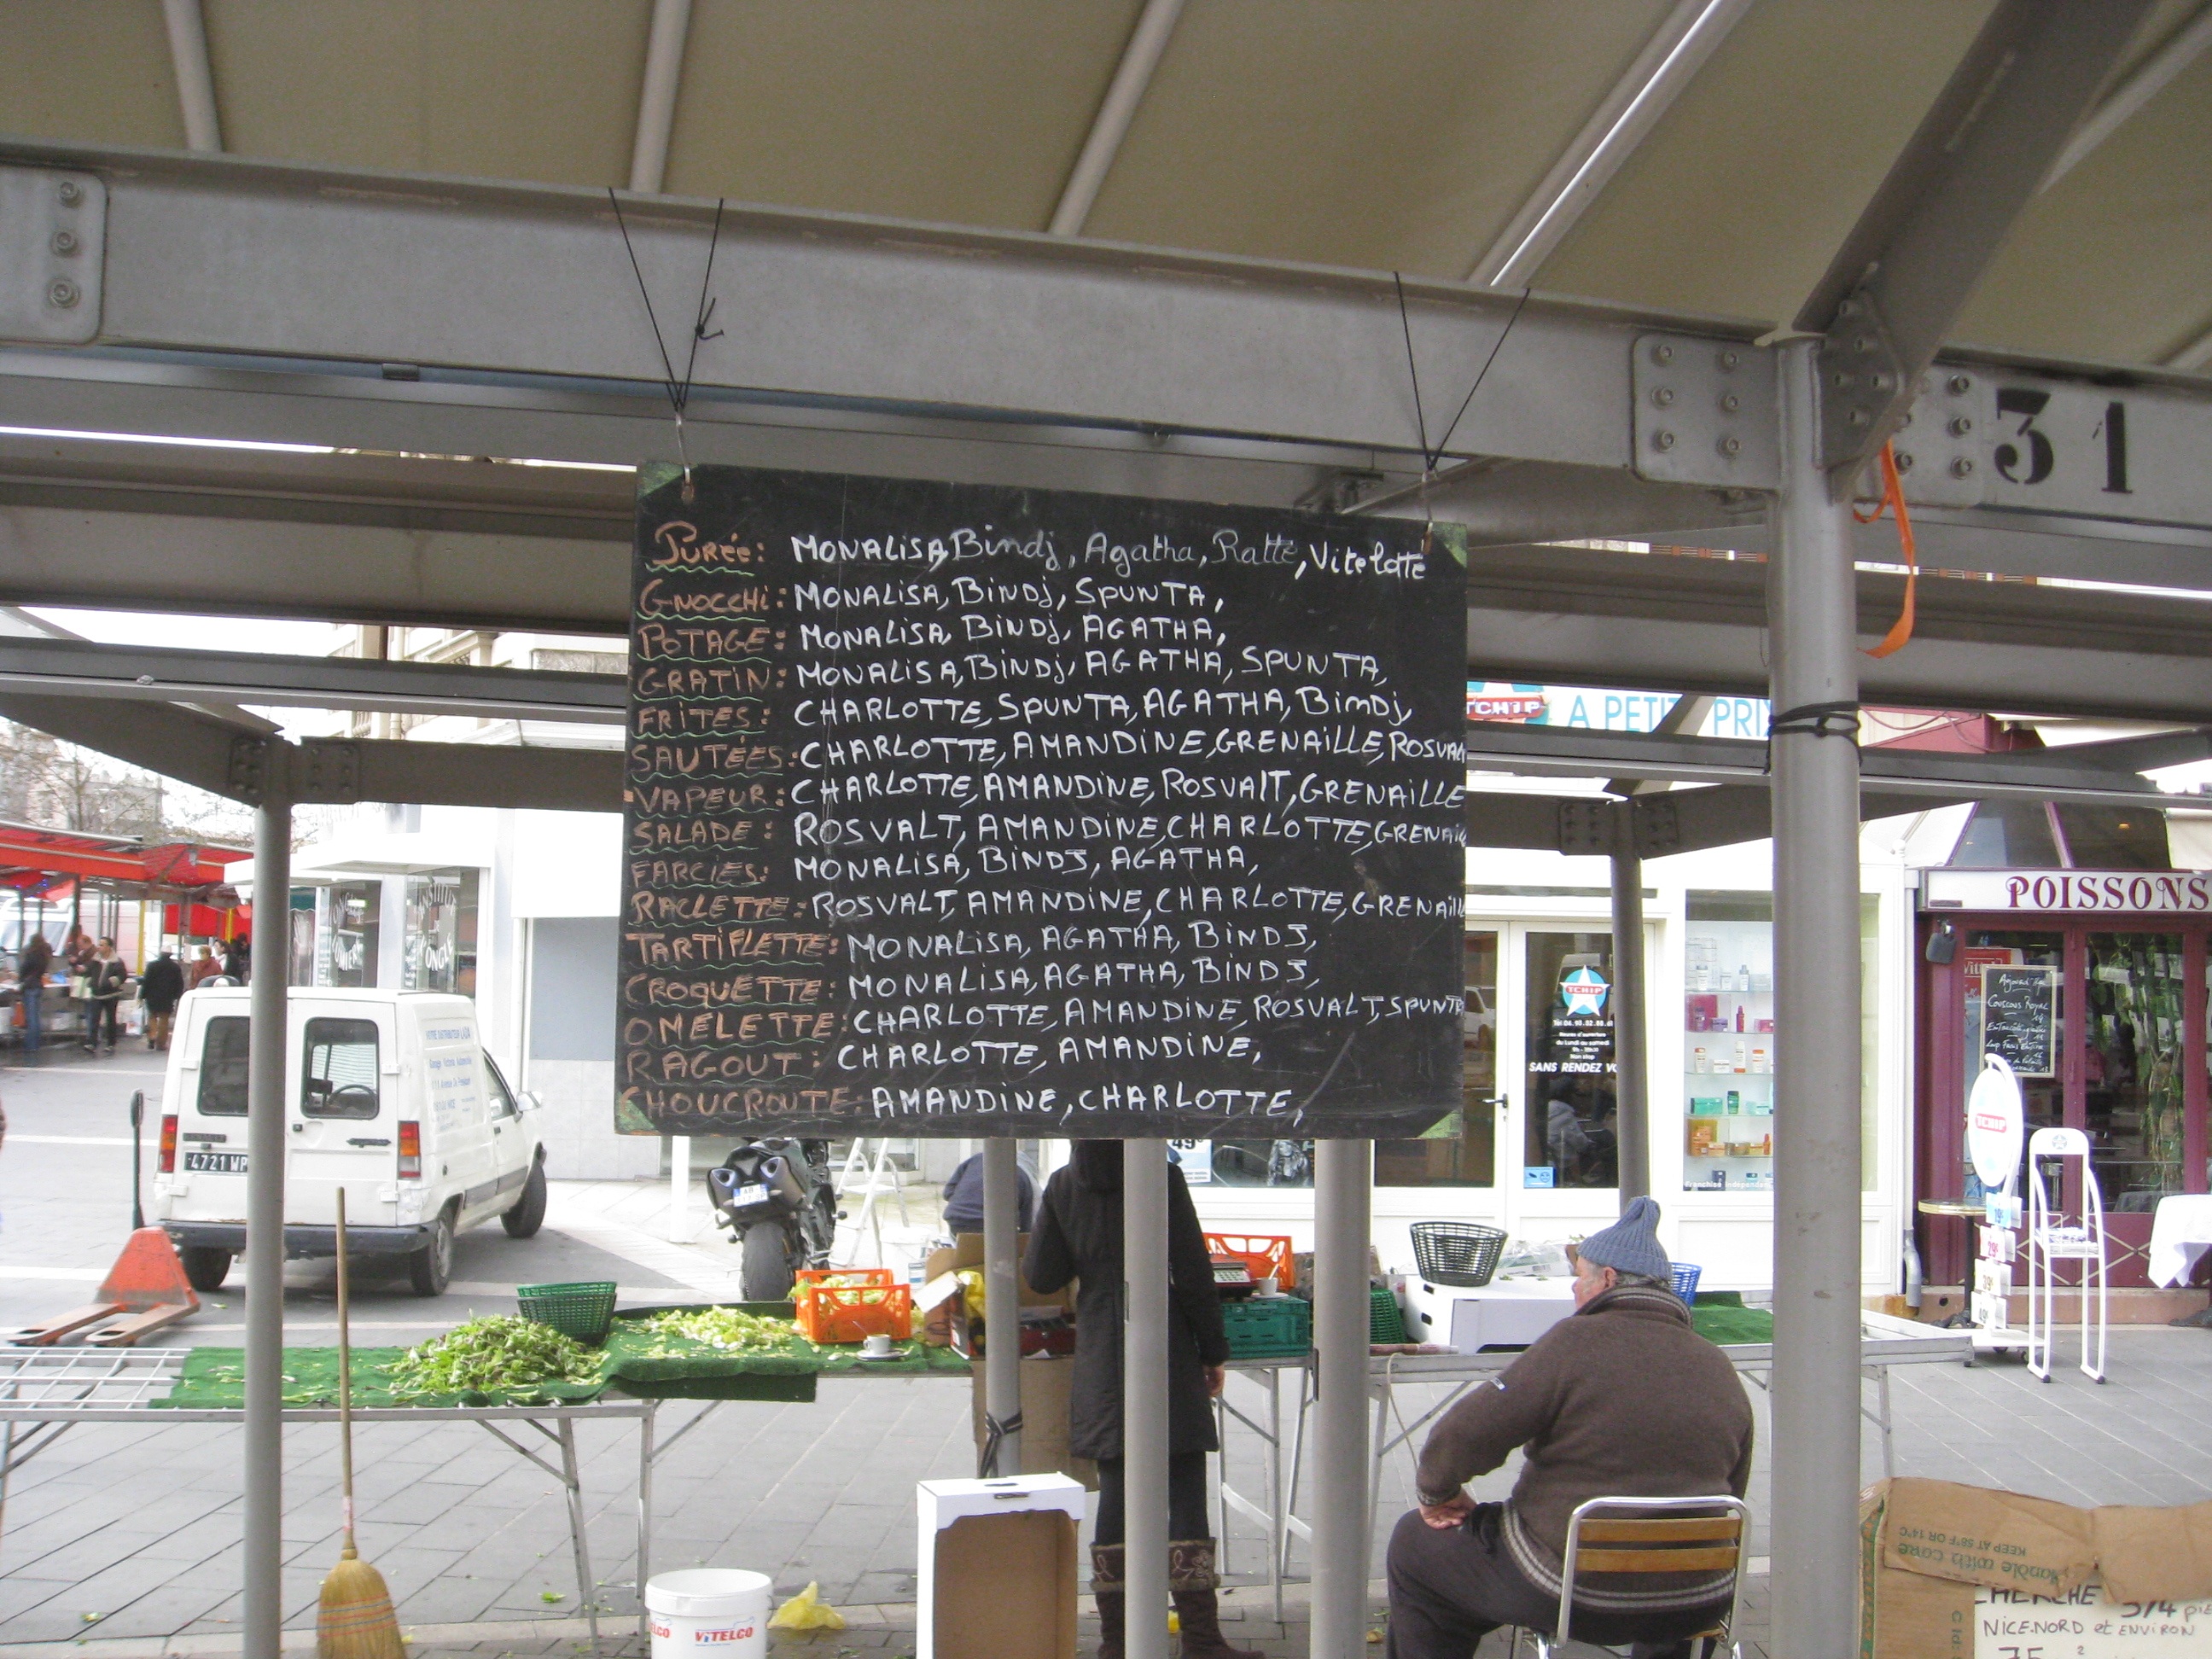 31
Purée: MONALISA, Bindj, Agatha, Ratte, Vitelotte
GNOCCHi: MONALISA, BiNDj, SPUNTA,
POTAGE: MONALISA, BiNDj, AGATHA,
GRATiN: MONALiSA, BiNDj, AGATHA, SPUNTA,
FRiTES: CHARLOTTE, SPUNTA, AGATHA, BimDj,
SAUTÉES: CHARLOTTE, AMANDiNE, GRENAiLLE, ROSVAlt
VAPEUR: CHARLOTTE, AMANDiNE, ROSVAlT, GRENAiLLE
SALADE: ROSVALT, AMANDiNE, CHARLOTTE, GRENAiL
FARCiES: MONALiSA, BiNDJ, AGATHA,
RACLETTE: ROSVALT, AMANDiNE, CHARLOTTE, GRENAill
TARTiFLETTE: MONALiSA, AGATHA, BiNDJ,
CROQUETTE: MONALiSA, AGATHA, BiNDJ,
OMELETTE: CHARLOTTE, AMANDiNE, ROSVALT, SPUNTA
RAGOUT: CHARLOTTE, AMANDiNE,
CHOUCROUTE: AMANDiNE, CHARLOTTE,
TCHIP A PETIT PRIX
POISSONS
TCHIP
SANS RENDEZ VO
Couscous Royal
TCHIP
Franchisé indépendant
4721 WP
49€
VITELCO
Handle with care
KEEP AT 58°F OR 14°C
CHERCHE 3/4 piè
NICE.NORD et ENVIRON
75